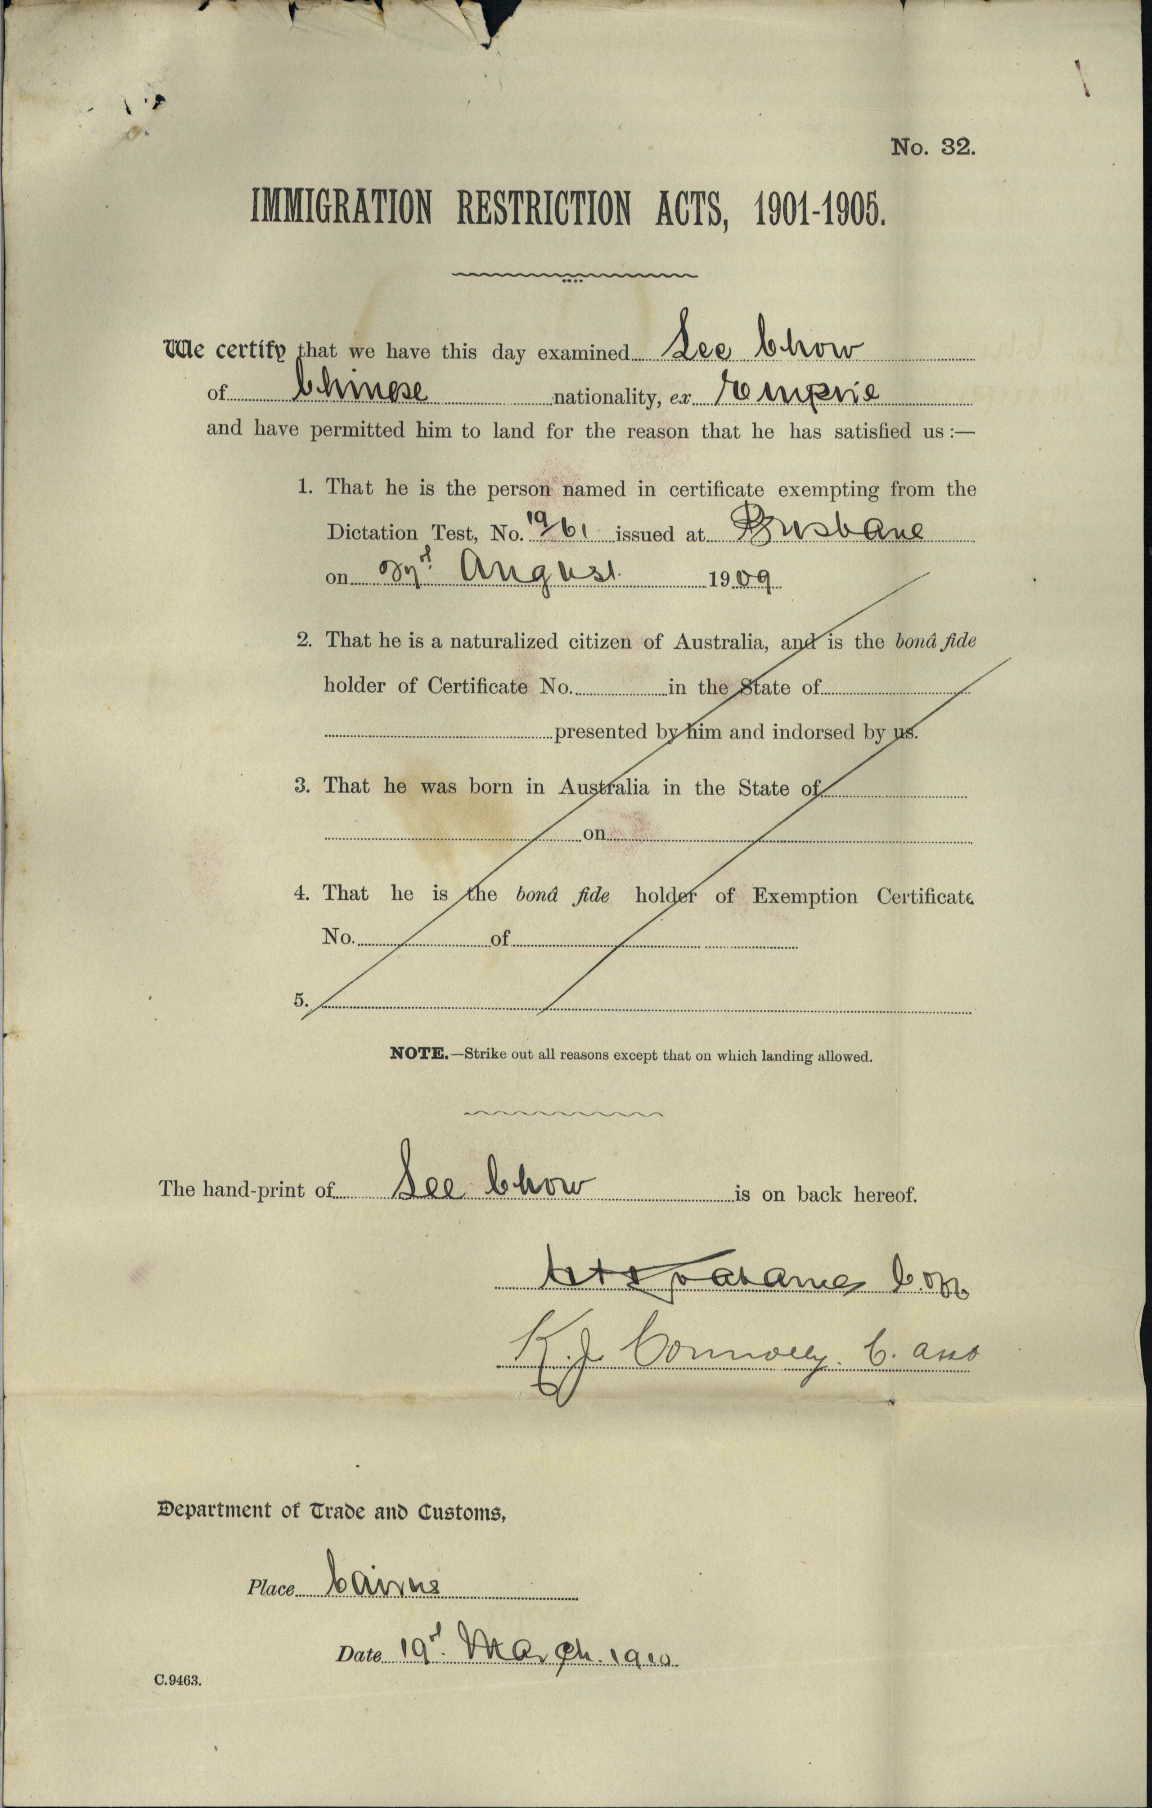 No. 32.
IMMIGRATION RESTRICTION ACTS, 1901-1905.
We certify that we have this day examined See Chow
of Chinese nationality, ex Empire
and have permitted him to land for the reason that he has satisfied us :—
1. That he is the person named in certificate exempting from the
Dictation Test, No. 19/61 issued at Brisbane
on August 1909
2. That he is a naturalized citizen of Australia, and is the bonâ fide
holder of Certificate No. in the State of
presented by him and indorsed by us.
3. That he was born in Australia in the State of
on
4. That he is the bonâ fide holder of Exemption Certificate
No. of
5.
NOTE.—Strike out all reasons except that on which landing allowed.
The hand-print of See Chow is on back hereof.
K. J. Connolly. C.
Department of Trade and Customs,
Place Cairns
Date 19 March. 1910
C.9463.